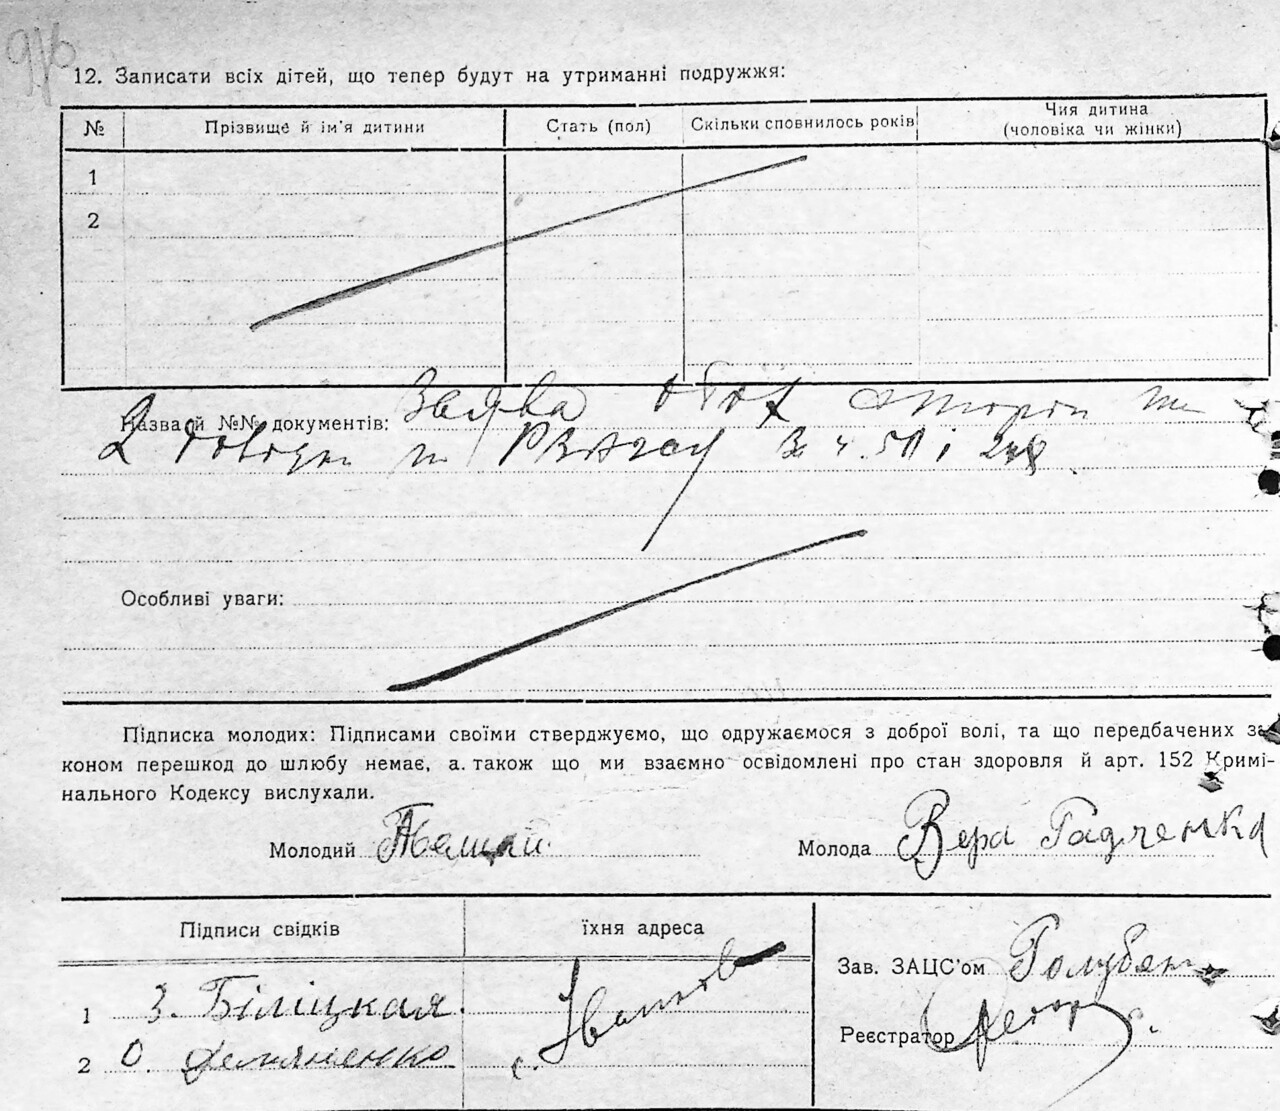 12. Записати всіх дітей, що тепер будут на утриманні подружжя:
№ Прізвище й ім'я дитини Стать (пол) Скільки сповнилось років Чия дитина
(чоловіка чи жінки)
1
2
Назва й №№ документів: Заява обох сторін та
2
Особливі уваги:
Підписка молодих: Підписами своїми стверджуємо, що одружаємося з доброї волі, та що передбачених за-
коном перешкод до шлюбу немає, а також що ми взаємно освідомлені про стан здоровля й арт. 152 Кримі-
нального Кодексу вислухали.
Молодий Молода Вера Гадченка
Підписи свідків їхня адреса
Зав. ЗАЦС'ом
1 З. Біліцкая.
Реєстратор
2 О. Демяненко с. Іванков